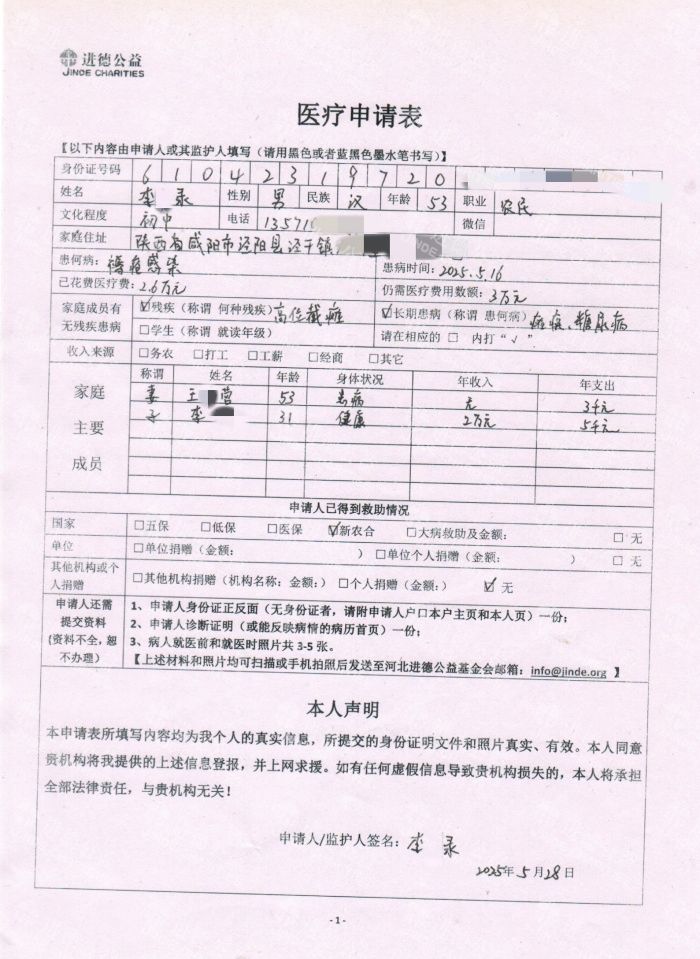 进德公益
JINDE CHARITIES
医疗申请表
【以下内容由申请人或其监护人填写（请用黑色或者蓝黑色墨水笔书写）】
身份证号码 6 1 0 4 2 3 1 9 7 2 0
姓名 李 录 性别 男 民族 汉 年龄 53 职业 农民
文化程度 初中 电话 13571 微信
家庭住址 陕西省咸阳市泾阳县泾干镇
患何病： 褥疮感染 患病时间：2025.5.16
已花费医疗费：2.6万元 仍需医疗费用数额：3万元
家庭成员有无残疾患病 ☑残疾（称谓 何种残疾）高位截瘫 ☑长期患病（称谓 患何病） 、糖尿病
□学生（称谓 就读年级） 请在相应的 □ 内打“√”
收入来源 □务农 □打工 □工薪 □经商 □其它
家庭主要成员 称谓 姓名 年龄 身体状况 年收入 年支出
妻 王 营 53 患病 元 3千元
子 李 31 健康 2万元 5千元
申请人已得到救助情况
国家 □五保 □低保 □医保 ☑新农合 □大病救助及金额： □ 无
单位 □单位捐赠（金额： ） □单位个人捐赠（金额： ） □ 无
其他机构或个人捐赠 □其他机构捐赠（机构名称：金额：） □个人捐赠（金额：） ☑ 无
申请人还需提交资料（资料不全，恕不办理）
1、申请人身份证正反面（无身份证者，请附申请人户口本户主页和本人页）一份；
2、申请人诊断证明（或能反映病情的病历首页）一份；
3、病人就医前和就医时照片共 3-5 张。
【上述材料和照片均可扫描或手机拍照后发送至河北进德公益基金会邮箱：info@jinde.org 】
本人声明
本申请表所填写内容均为我个人的真实信息，所提交的身份证明文件和照片真实、有效。本人同意
贵机构将我提供的上述信息登报，并上网求援。如有任何虚假信息导致贵机构损失的，本人将承担
全部法律责任，与贵机构无关！
申请人/监护人签名：李 录
2025年5月28日
- 1 -